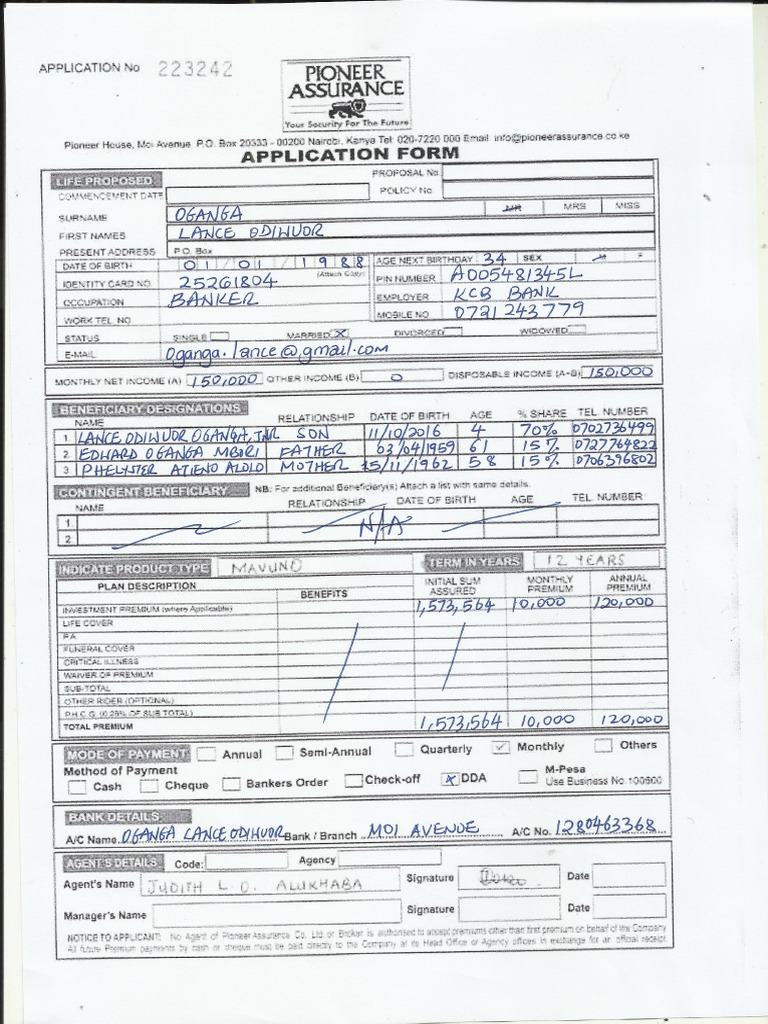 APPLICATION No 223242
PIONEER
ASSURANCE
Your Security For The Future
Pioneer House, Moi Avenue, P.O. Box 20333 - 00200 Nairobi, Kenya Tel: 020-7220 000 Email: info@pioneerassurance.co.ke
APPLICATION FORM
LIFE PROPOSED PROPOSAL No.
COMMENCEMENT DATE POLICY No.
SURNAME OGANGA MR MRS MISS
FIRST NAMES LANCE ODIWUOR
PRESENT ADDRESS P.O. Box
DATE OF BIRTH 01 01 1988 (Attach Copy) AGE NEXT BIRTHDAY 34 SEX M F
IDENTITY CARD NO. 25261804 PIN NUMBER A005481345L
OCCUPATION BANKER EMPLOYER KCB BANK
WORK TEL NO MOBILE NO 0721243779
STATUS SINGLE MARRIED X DIVORCED WIDOWED
E-MAIL oganga.lance@gmail.com
MONTHLY NET INCOME (A) 150,000 OTHER INCOME (B) 0 DISPOSABLE INCOME (A+B) 150,000
BENEFICIARY DESIGNATIONS
NAME RELATIONSHIP DATE OF BIRTH AGE % SHARE TEL. NUMBER
1 LANCE ODIWUOR OGANGA, JNR SON 11/10/2016 4 70% 0702736499
2 EDWARD OGANGA MBORI FATHER 03/04/1959 61 15% 0727764822
3 PHELYSTER ATIENO ALOLO MOTHER 15/11/1962 58 15% 0706396802
CONTINGENT BENEFICIARY NB: For additional Beneficiary(s) Attach a list with same details.
NAME RELATIONSHIP DATE OF BIRTH AGE TEL. NUMBER
1. N/A
2.
INDICATE PRODUCT TYPE MAVUNO TERM IN YEARS 12 YEARS
PLAN DESCRIPTION BENEFITS INITIAL SUM ASSURED MONTHLY PREMIUM ANNUAL PREMIUM
INVESTMENT PREMIUM (where Applicable) 1,573,564 10,000 120,000
LIFE COVER
P.A
FUNERAL COVER
CRITICAL ILLNESS
WAIVER OF PREMIUM
SUB-TOTAL
OTHER RIDER (OPTIONAL)
P.H.C.G. (0.25% OF SUB TOTAL)
TOTAL PREMIUM 1,573,564 10,000 120,000
MODE OF PAYMENT Annual Semi-Annual Quarterly ✓ Monthly Others
Method of Payment
Cash Cheque Bankers Order Check-off X DDA M-Pesa
Use Business No.100500
BANK DETAILS
A/C Name OGANGA LANCE ODIWUOR Bank / Branch MOI AVENUE A/C No. 1280463368
AGENT'S DETAILS Code: Agency
Agent's Name JUDITH L O. ALUKHABA Signature Date
Manager's Name Signature Date
NOTICE TO APPLICANT: No Agent of Pioneer Assurance Co. Ltd. or Broker is authorised to accept premiums other than first premium on behalf of the Company
All future Premium payments by cash or cheque must be paid directly to the Company at its Head Office or Agency offices in exchange for an official receipt.